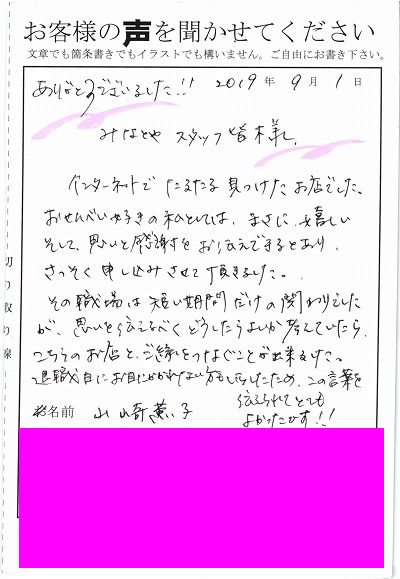 お客様の声を聞かせてください
文章でも箇条書きでもイラストでも構いません。ご自由にお書き下さい。
ありがとうございました!! 2019年9月1日
みなとや スタッフ皆様
インターネットで たまたま 見つけた お店でした。
おせんべい好きの私としては、まさに 嬉しい
そして、思いと感謝を お伝えできるとあり、
さっそく 申し込みさせて 頂きました。
その職場は 短い期間だけの関わりでした
が、思いを伝えるべく どうしたらよいか 考えていたら、
こちらのお店と、ご縁をつなぐことが出来ました。
退職日にお目にかかれない方もしらしたため、この言葉を
伝えられてとても
よかったです!!
お名前 山崎薫子
切り取り線